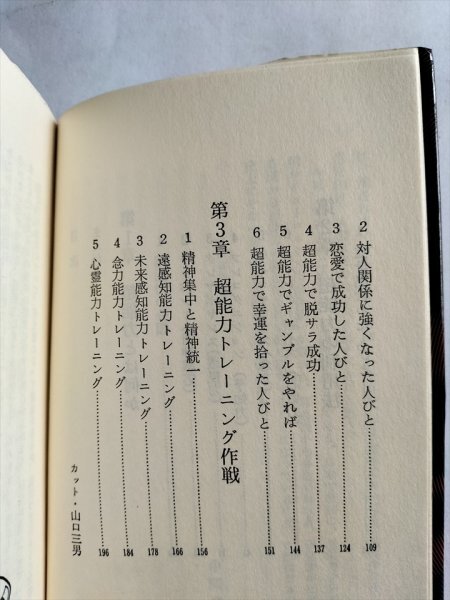 2 対人関係に強くなった人びと……109
3 恋愛で成功した人びと……124
4 超能力で脱サラ成功……137
5 超能力でギャンブルをやれば……144
6 超能力で幸運を拾った人びと……151
第3章 超能力トレーニング作戦
1 精神集中と精神統一……156
2 遠感知能力トレーニング……166
3 未来感知能力トレーニング……178
4 念力能力トレーニング……184
5 心霊能力トレーニング……196
カット・山口三男